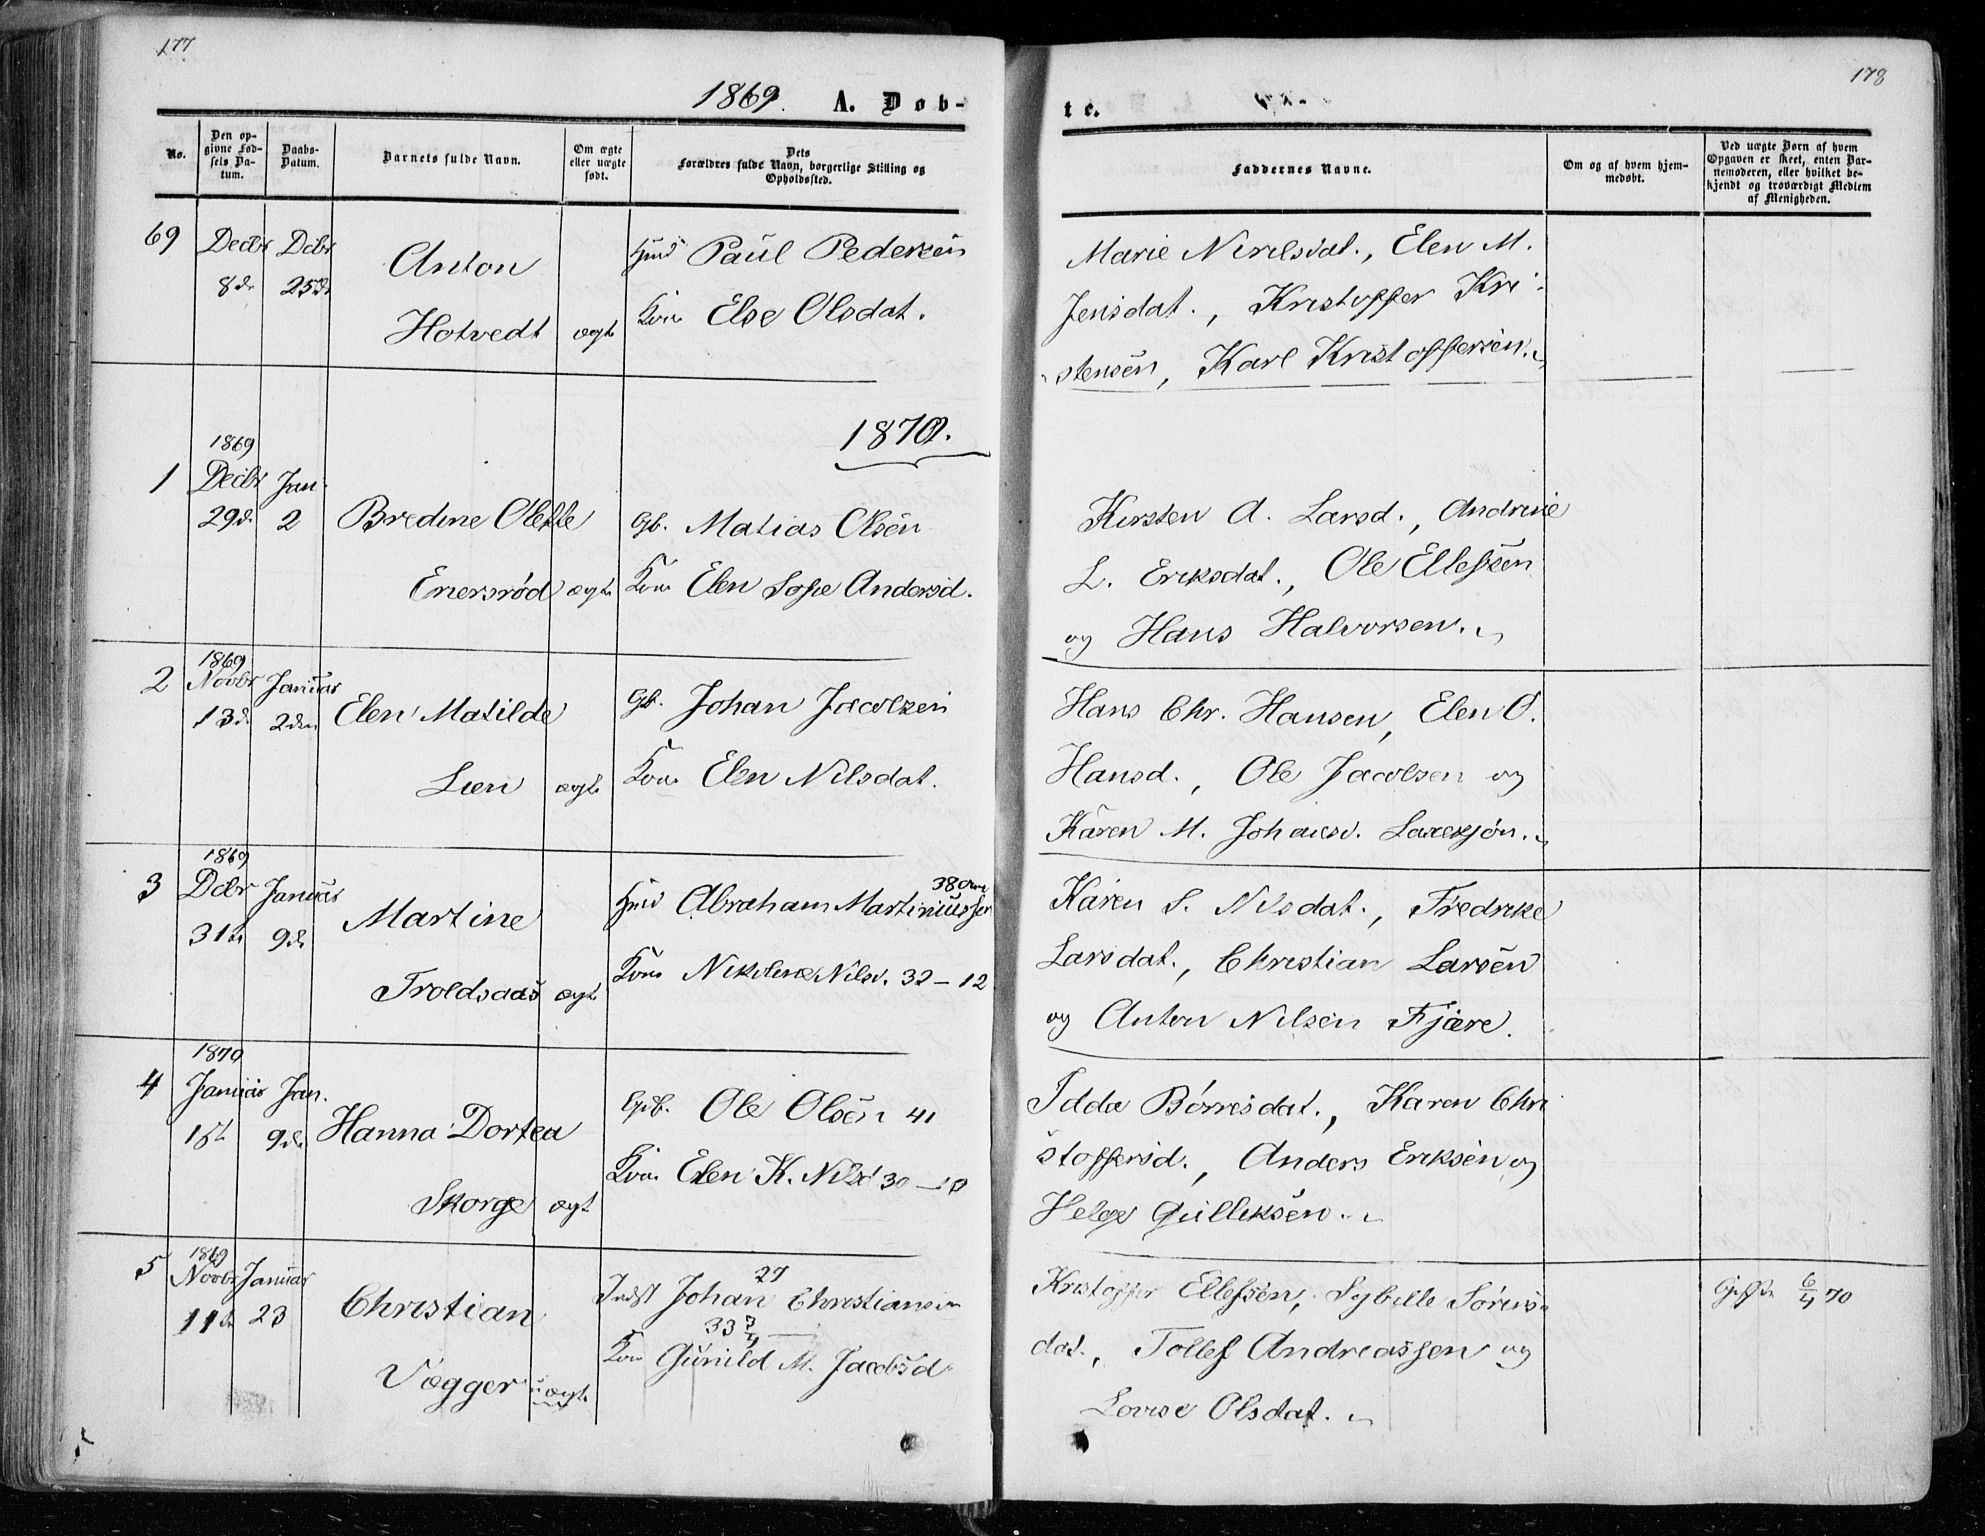 177
178
1869. A. Døb-
te.
No.
Den op-
givne Fød-
sels Da-
tum.
Daabs-
Datum.
Barnets fulde Navn.
Om ægte
eller uægte
født.
Dets
Forældres fulde Navn, borgerlige Stilling og
Opholdssted.
Faddernes Navne.
Om og af hvem hjem-
medøbt.
Ved uægte Børn af hvem
Opgaven er skeet, enten Bar-
nemoderen, eller hvilket be-
kjendt og troværdigt Medlem
af Menigheden.
69 Decbr Dcbr
8de 25de
Anton
Hotvedt ægte
Hmd Paul Pedersen
Kone Else Olsdat.
Marie Nirilsdat., Elen M.
Jensdat., Kristoffer Kri-
stensen, Karl Kristoffersen.
1870.
1869
1 Decbr Jan.
29de 2
Bredine Olette
Enersrød ægte
Gb. Matias Olsen
Kone Elen Sofie Andersd.
Kirsten A. Larsd., Andrine
L. Eriksdat., Ole Ellefsen
og Hans Halvorsen.
1869
2 Novbr Januar
13de 2den
Elen Matilde
Lien ægte
Gb. Johan Jacobsen
Kone Elen Nilsdat.
Hans Chr. Hansen, Elen O.
Hansd., Ole Jacobsen og
Karen M. Johansd.
1869
3 Dcbr Januar
31te 9de
Martine
Troldsaas ægte
Hmd Abraham Martiniussen
38
Kone Nikoline Nilsd. 32 - 12
Karen S. Nilsdat., Fredrike
Larsdat., Christian Larsen
og Anton Nilsen Fjære.
1870
4 Januar Jan.
1ste 9de
Hanna Dortea
Skorge ægte
Gb. Ole Olsen 41
Kone Elen K. Nilsd 30 - 10
Idda Børresdat., Karen Chri
stoffersd., Anders Eriksen og
Helge Gulliksen.
1869
5 Novbr Januar
11te 23
Christian
Vægger uægte
Indst Johan Christiansen
27
33 3/4
Kone Gunild M. Jacobsd
Kristoffer Ellefsen, Sybille Sørens-
dat., Tollef Andreassen og
Lovise Olsdat.
Gift 6/4 70